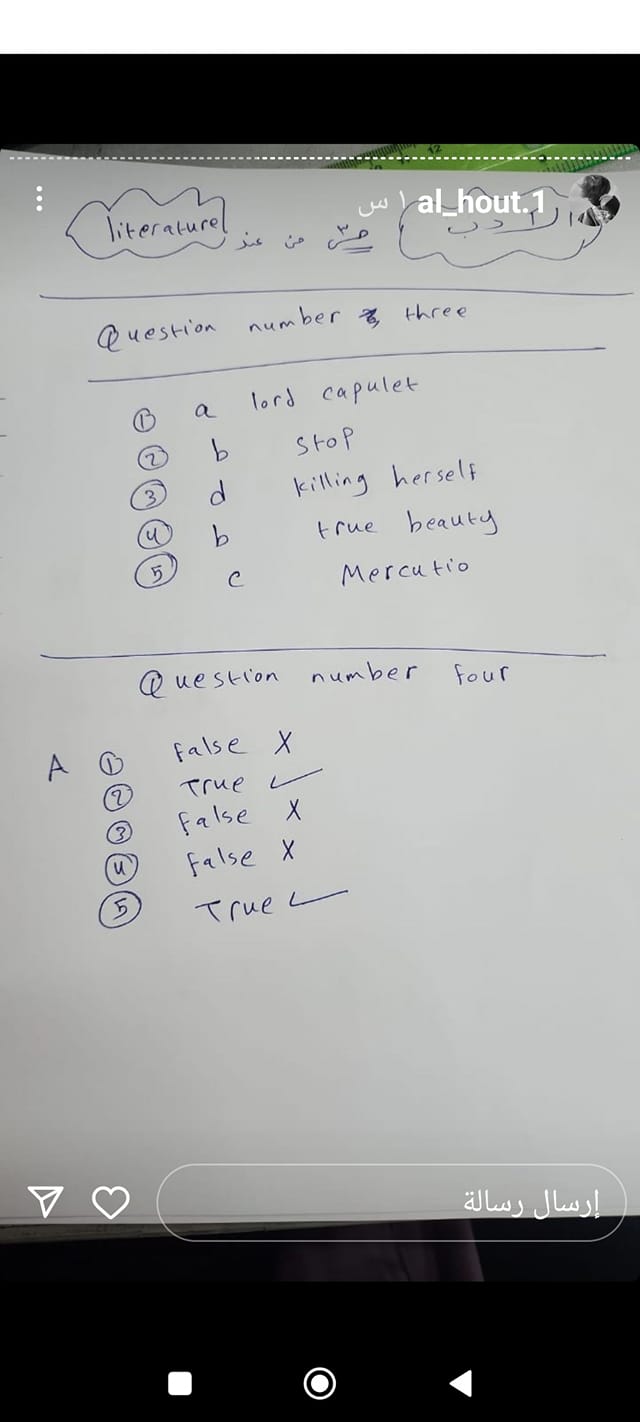 al_hout.1 ١ س
literature من عند الأدب
Question number three
① a lord capulet
② b stop
③ d killing herself
④ b true beauty
⑤ c Mercutio
Question number four
A ① False X
② True ✓
③ False X
④ False X
⑤ True ✓
إرسال رسالة